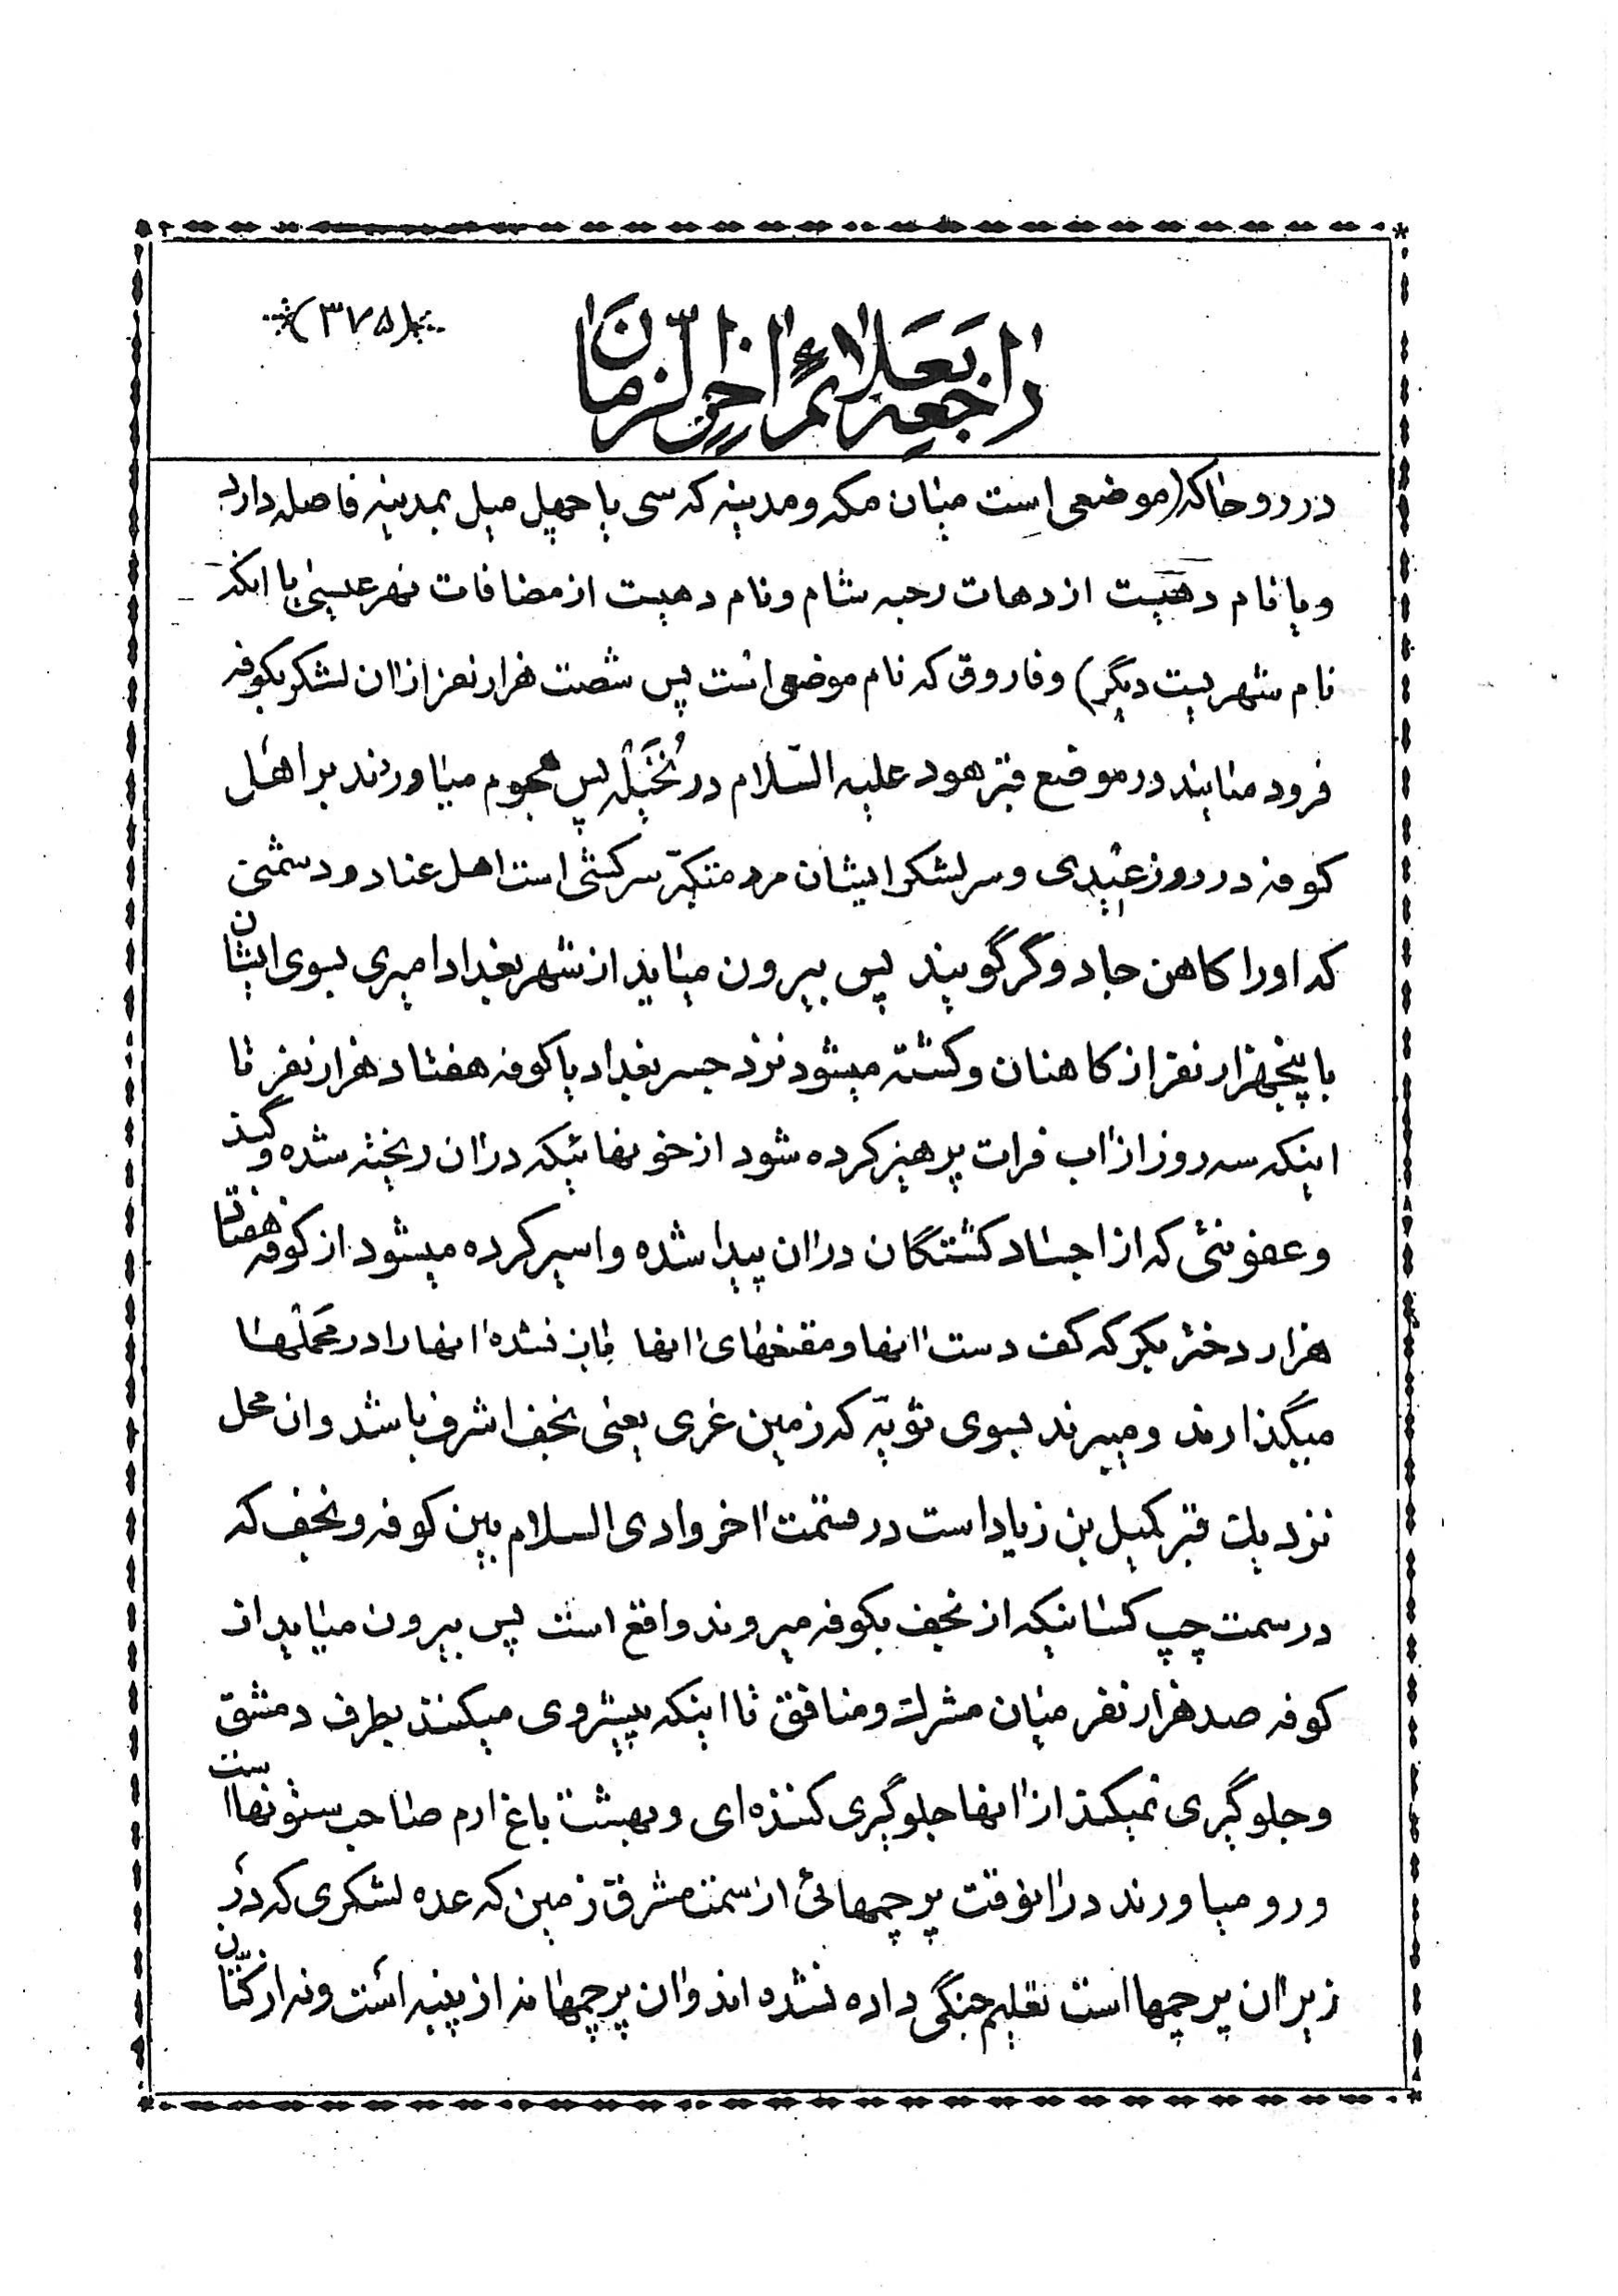 (۳۷۵)
راجع بعلائم اخر الزمان
در روحا که (موضعی است میان مکه و مدینه که سی یا چهل میل بمدینه فاصله دارد
و یا نام دهیست از دهات رحبه شام و نام دهیست از مضافات نهر عیسی یا اینکه
نام شهریست دیگر) و فاروق که نام موضعی است پس شصت هزار نفر از ان لشکر بکوفه
فرود میایند در موضع قبر هود علیه السّلام در نُخَیْلَه پس هجوم میاورند بر اهل
کوفه در روز عیدی و سر لشکر ایشان مرد متکبّر سرکشی است اهل عناد و دشمنی
که او را کاهن جادوگر گویند پس بیرون میاید از شهر بغداد امیری بسوی ایشان
با پنجهزار نفر از کاهنان و کشته میشود نزد جسر بغداد یا کوفه هفتاد هزار نفر تا
اینکه سه روز از اب فرات پرهیز کرده شود از خونهائیکه در ان ریخته شده و گند
و عفونتی که از اجساد کشتگان در ان پیدا شده و اسیر کرده میشود از کوفه هفتاد
هزار دختر بکر که کف دست انها و مقنعهای انها باز نشده انها را در محملها
میگذارند و میبرند بسوی ثویّه که زمین غری یعنی نجف اشرف باشد و ان محل
نزدیک قبر کمیل بن زیاد است در قسمت اخر وادی السلام بین کوفه و نجف که
در سمت چپ کسانیکه از نجف بکوفه میروند واقع است پس بیرون میاید از
کوفه صد هزار نفر میان مشرک و منافق تا اینکه پیشروی میکنند بطرف دمشق
و جلوگیری نمیکند از انها جلوگیری کننده‌ای و بهشت باغ ارم صاحب ستونها است
و رو میاورند در انوقت پرچمهائی از سمت مشرق زمین که عده لشکری که در
زیر ان پرچمها است تعلیم جنگی داده نشده اند و ان پرچمها نه از پنبه است و نه از کتّان